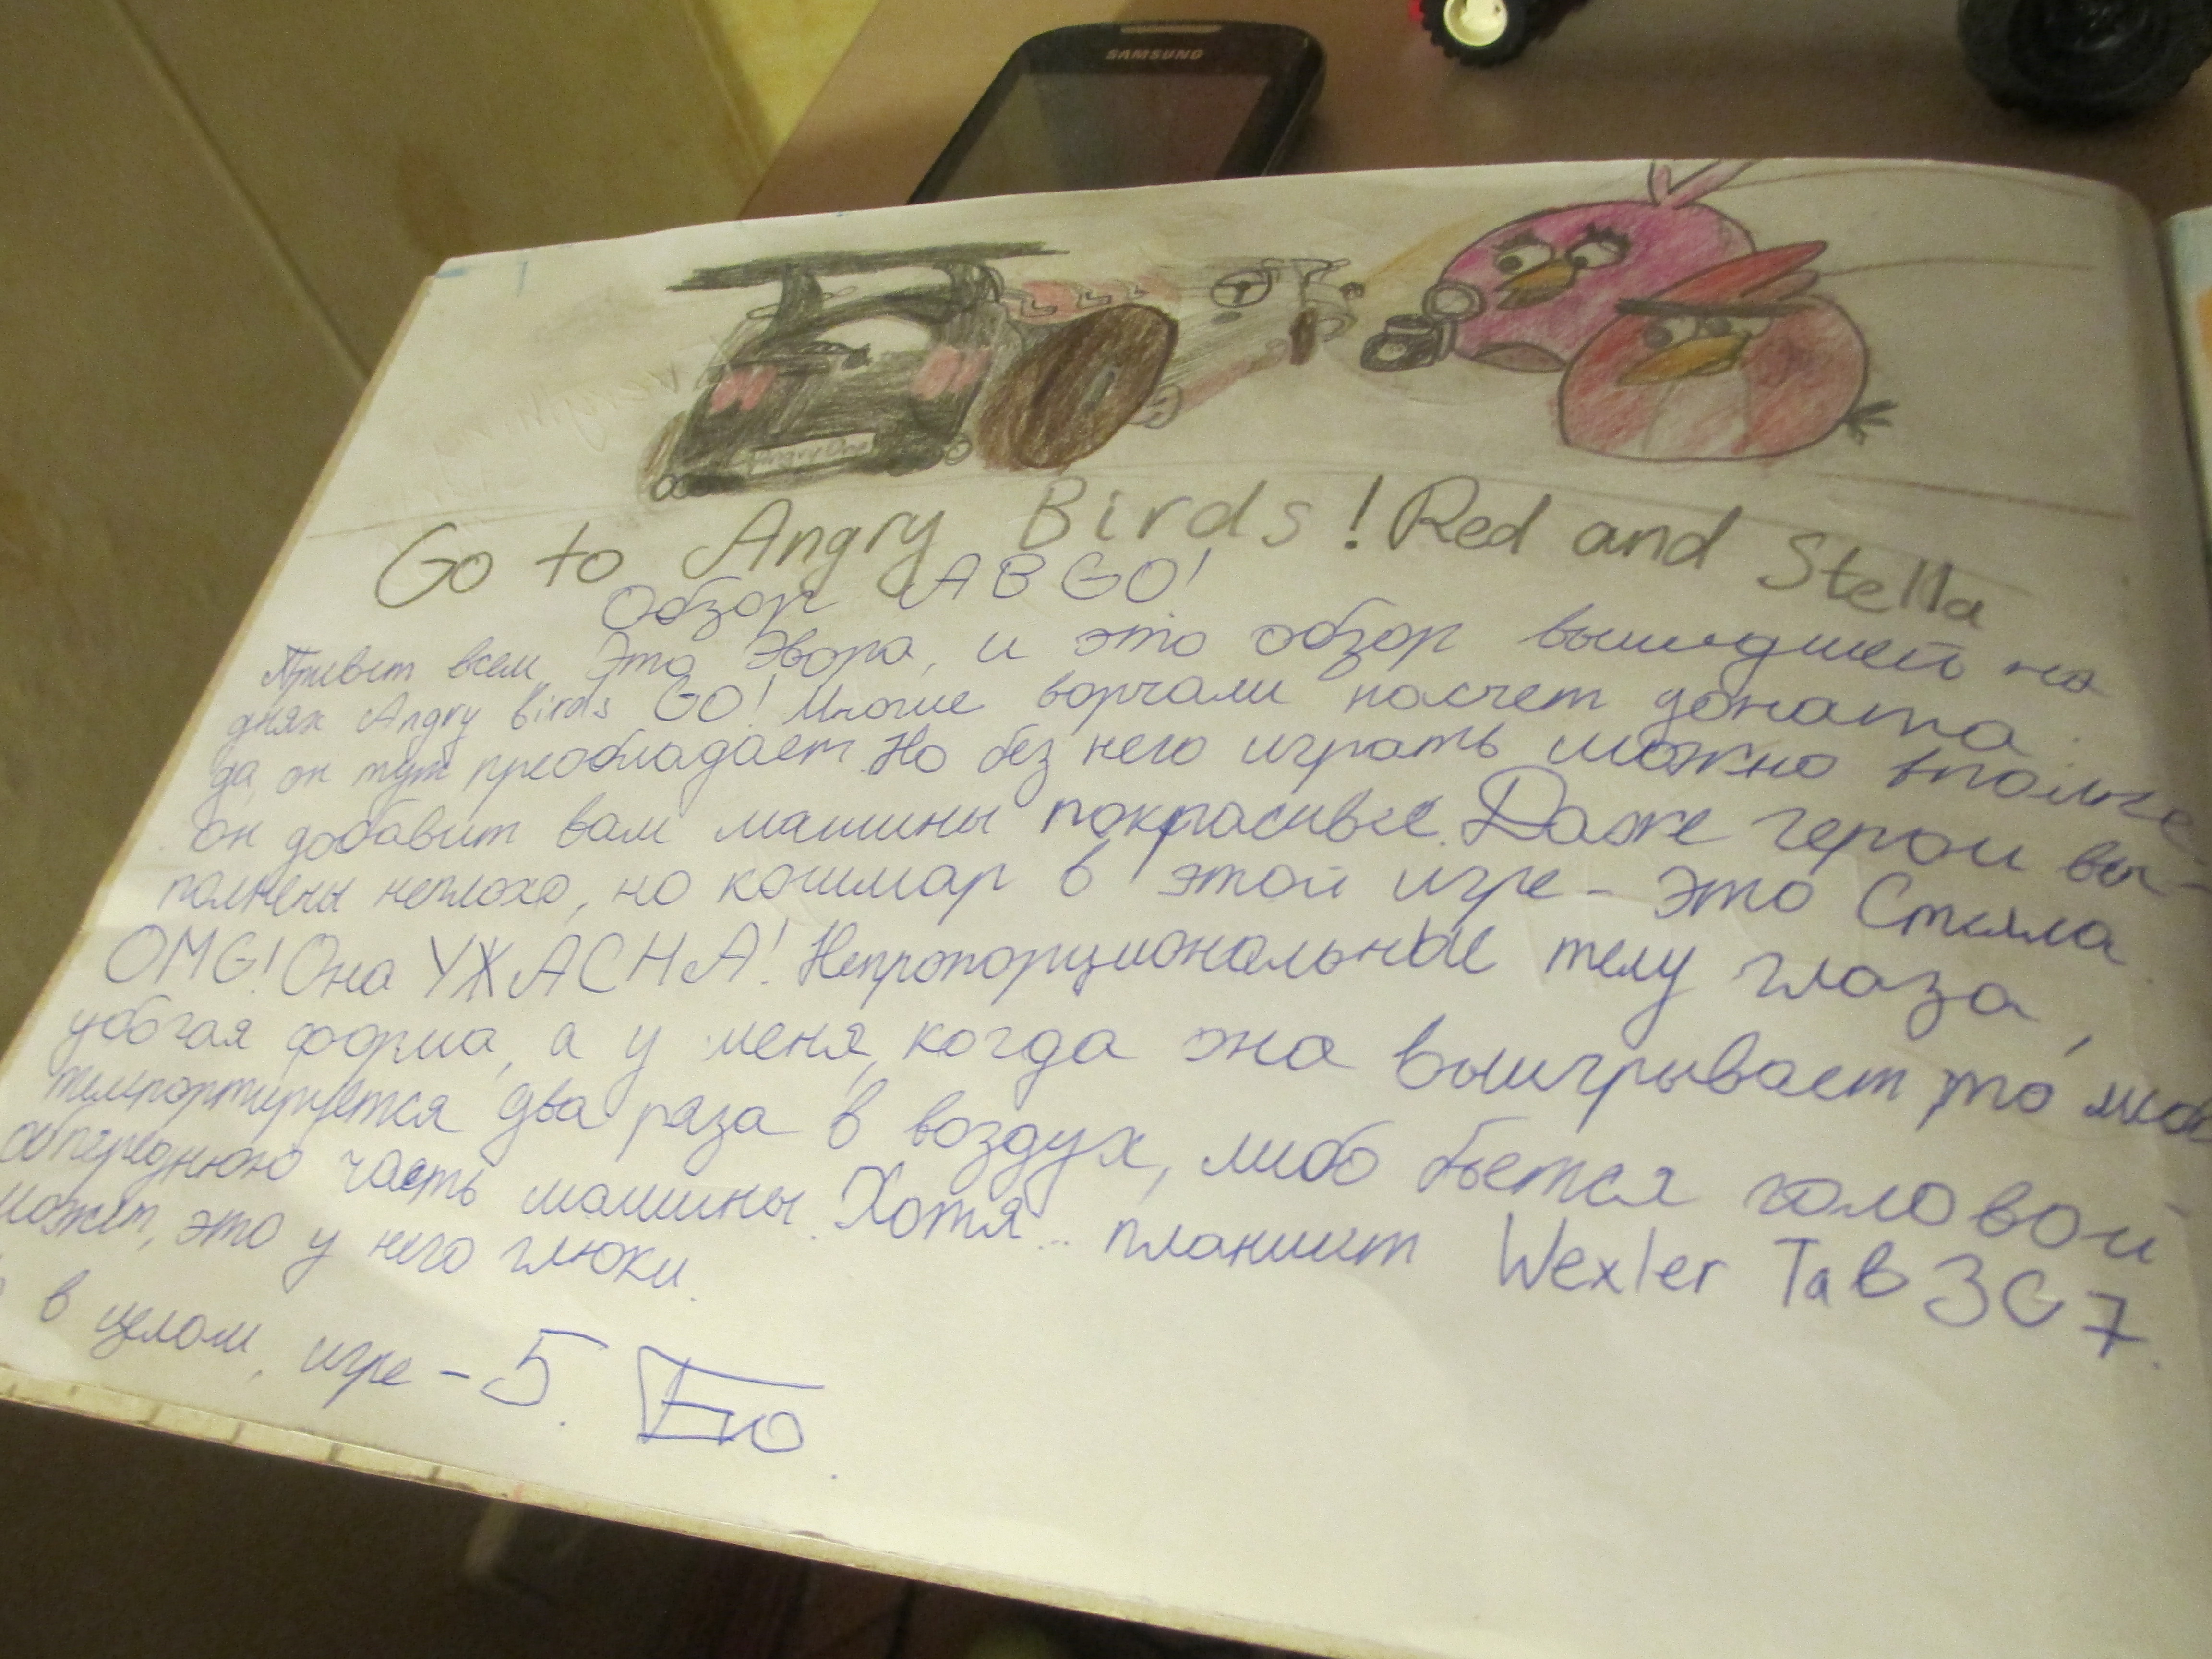 SAMSUNG
Go to Angry Birds! Red and Stella
Обзор AB GO!
Привет всем, Это Эвора, и это обзор вышедшей на
днях Angry Birds GO! Многие ворчали насчет доната.
да, он тут преобладает. Но без него играть можно вполне
он добавит вам машины покрасивее. Даже герои вы-
полнены неплохо, но кошмар в этой игре - это Стелла
OMG! Она УЖАСНА! Непропорциональные телу глаза,
убогая форма, а у меня, когда она выигрывает, то
телепортируется два раза в воздух, либо бьется головой
переднюю часть машины. Хотя.. планшет Wexler Tab 3G 7.
может, это у него глюки.
в целом, игре - 5.